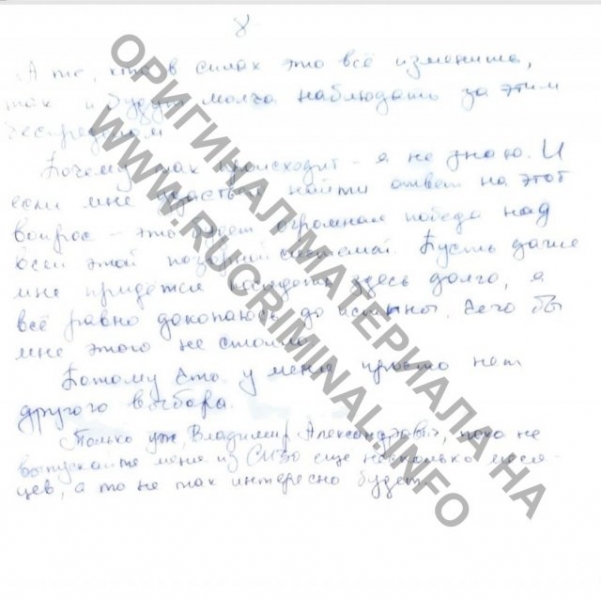 8
А те, кто в силах это всё изменить,
так и будут молча наблюдать за этим
беспределом.
Почему так происходит - я не знаю. И
если мне удастся найти ответ на этот
вопрос - это будет огромная победа над
всей этой позорной системой. Пусть даже
мне придется посидеть здесь долго, я
всё равно докопаюсь до истины. Чего бы
мне этого не стоило.
Потому что у меня просто нет
другого выбора.
Только уж, Владимир Александрович, пока не
выпускайте меня из СИЗО еще несколько меся-
цев, а то не так интересно будет.
ОРИГИНАЛ МАТЕРИАЛА НА
WWW.RUCRIMINAL.INFO